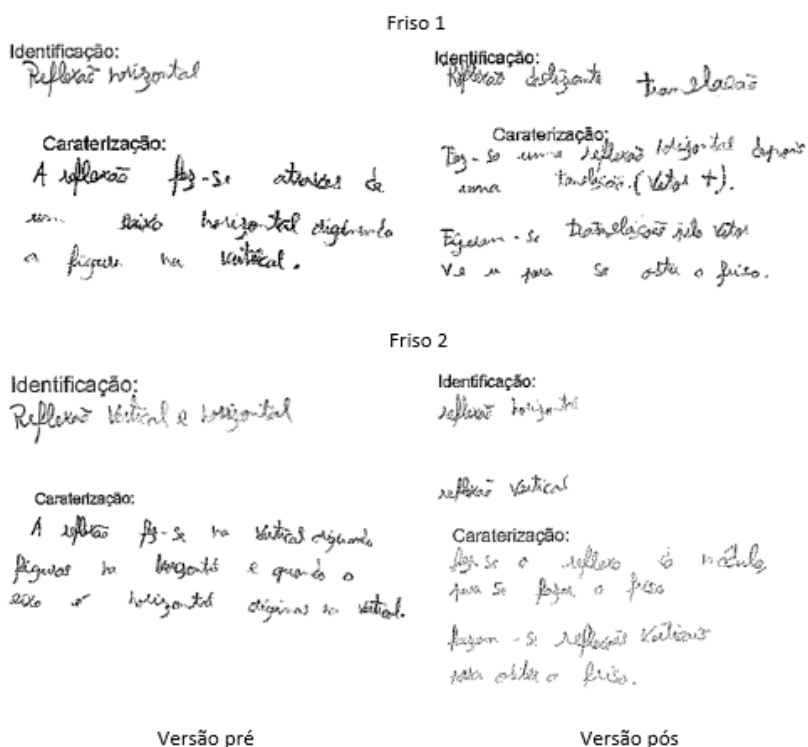 Friso 1
Identificação:
Reflexão horizontal
Caraterização:
A reflexão faz-se através de
um eixo horizontal originando
a figura na vertical.
Identificação:
Reflexão deslizante translação
Caraterização:
Faz-se uma reflexão horizontal depois
uma translação. (Vetor +).
translações pelo vetor
para se obter o friso.
Friso 2
Identificação:
Reflexão Vertical e horizontal
Caraterização:
A reflexão faz-se na vertical originando
figuras na horizontal e quando o
eixo é horizontal origina na vertical.
Identificação:
reflexão horizontal
reflexão vertical
Caraterização:
faz-se o reflexo do módulo
para se fazer o friso
fazem-se reflexões verticais
para obter o friso.
Versão pré
Versão pós